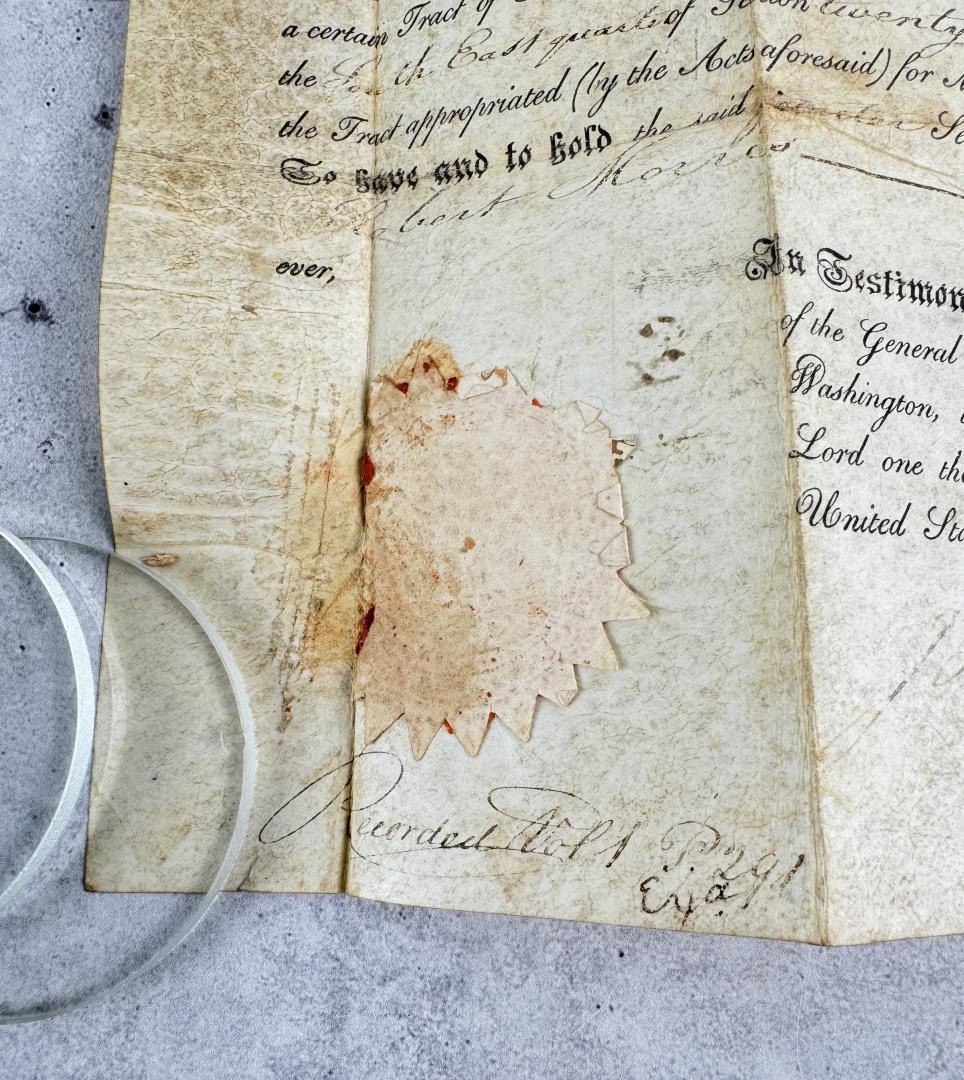 a certain Tract of
the South East quarter of Section twenty
the Tract appropriated (by the Acts aforesaid) for
To have and to hold the said
Robert Morris
ever,
In Testimon
of the General
Washington,
Lord one tho
United Sta
Recorded Vol 1 P. 291
Exa.